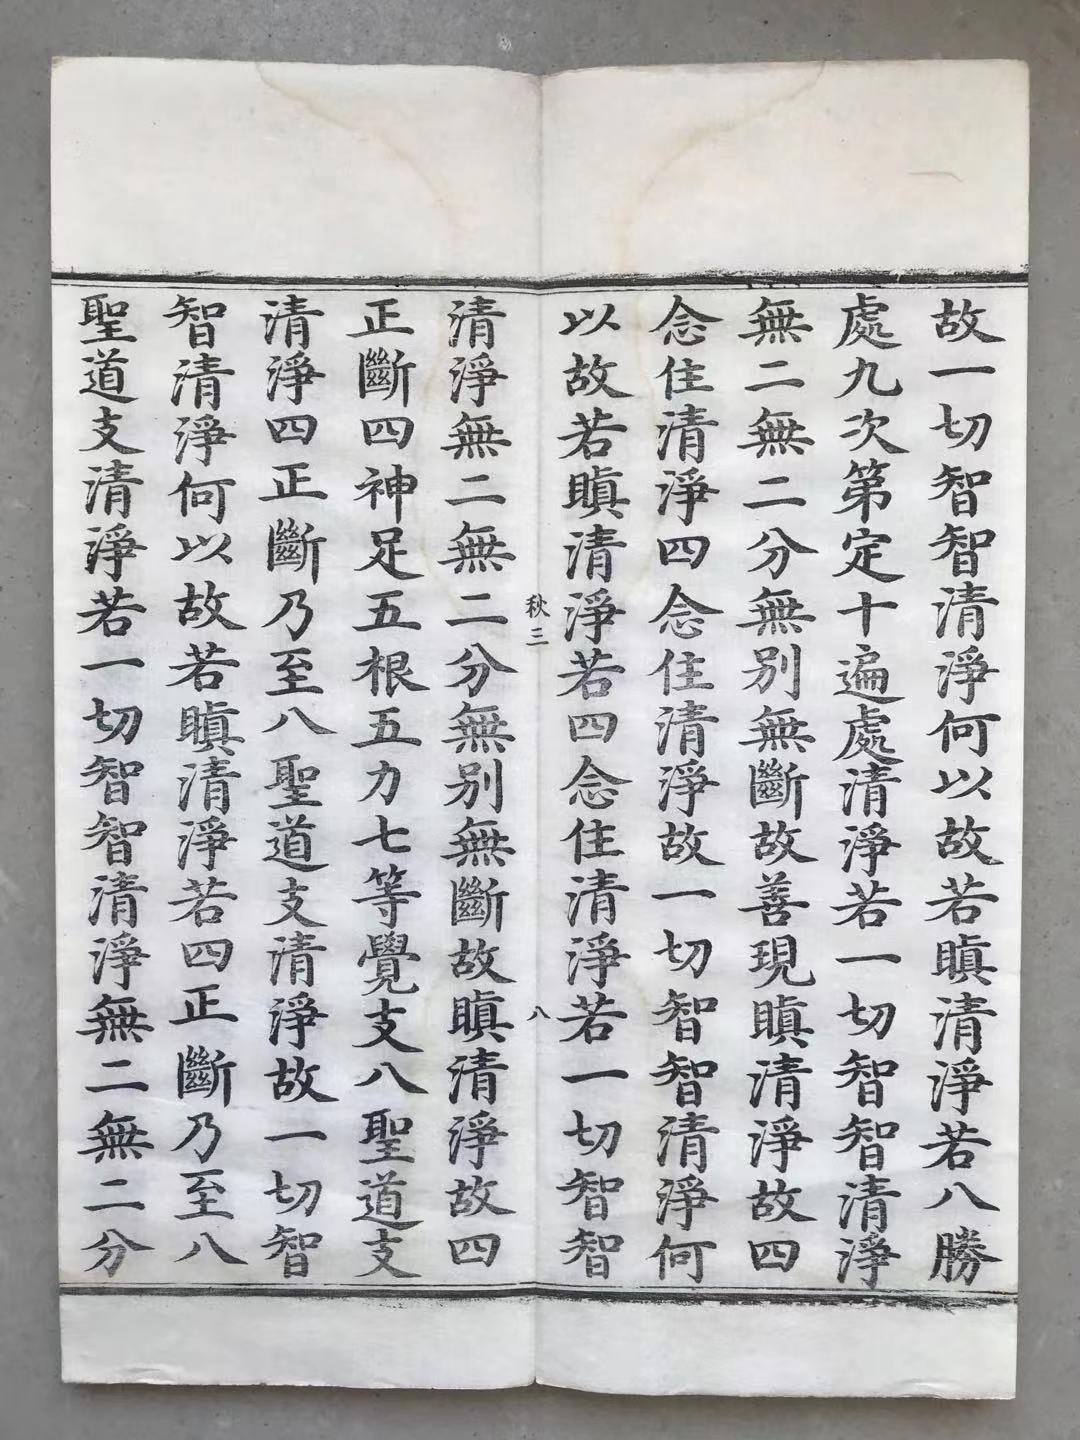 故一切智智清淨何以故若瞋清淨若八勝
處九次第定十遍處清淨若一切智智清淨
無二無二分無別無斷故善現瞋清淨故四
念住清淨四念住清淨故一切智智清淨何
以故若瞋清淨若四念住清淨若一切智智
秋三
八
清淨無二無二分無別無斷故瞋清淨故四
正斷四神足五根五力七等覺支八聖道支
清淨四正斷乃至八聖道支清淨故一切智
智清淨何以故若瞋清淨若四正斷乃至八
聖道支清淨若一切智智清淨無二無二分